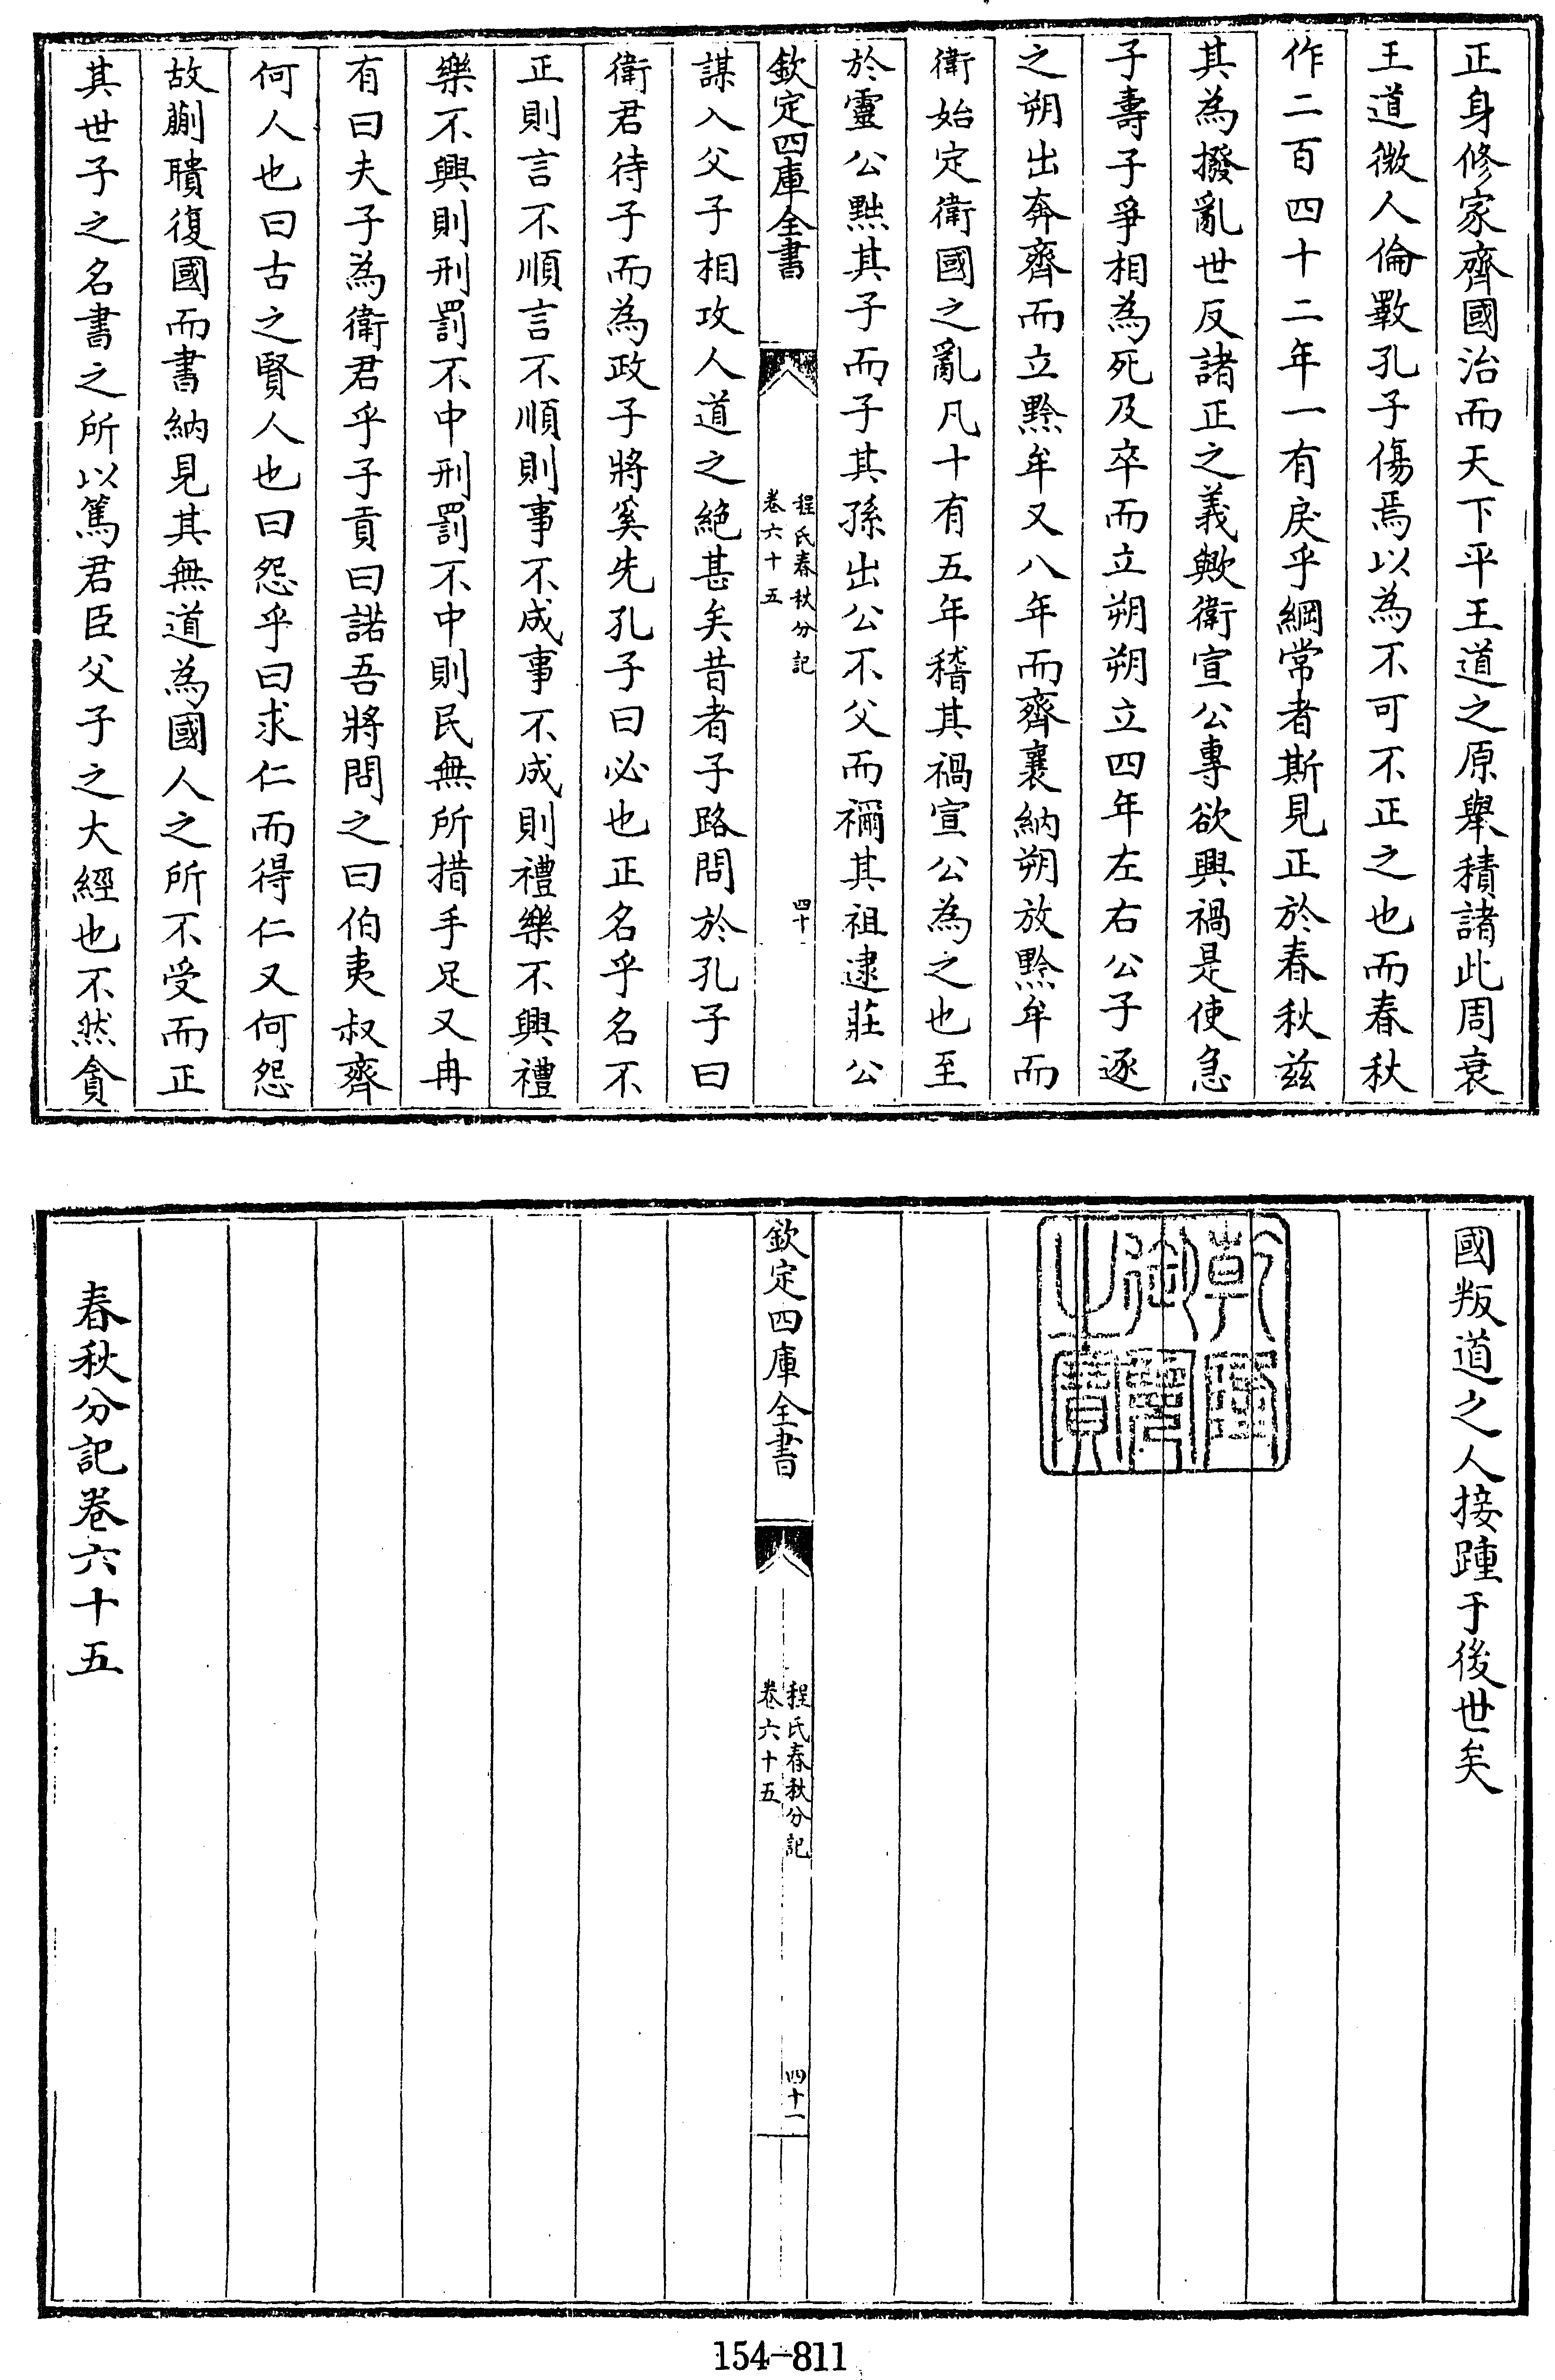 正身修家齊國治而天下平王道之原舉積諸此周衰
王道微人倫斁孔子傷焉以為不可不正之也而春秋
作二百四十二年一有戾乎綱常者斯見正於春秋茲
其為撥亂世反諸正之義歟衛宣公專欲興禍是使急
子壽子爭相為死及卒而立朔朔立四年左右公子逐
之朔出奔齊而立黔牟又八年而齊襄納朔放黔牟而
衛始定衛國之亂凡十有五年稽其禍宣公為之也至
於靈公黜其子而子其孫出公不父而禰其祖逮莊公
欽定四庫全書
程氏春秋分記
卷六十五
四十
謀入父子相攻人道之絕甚矣昔者子路問於孔子曰
衛君待子而為政子將奚先孔子曰必也正名乎名不
正則言不順言不順則事不成事不成則禮樂不興禮
樂不興則刑罰不中刑罰不中則民無所措手足又冉
有曰夫子為衛君乎子貢曰諾吾將問之曰伯夷叔齊
何人也曰古之賢人也曰怨乎曰求仁而得仁又何怨
故蒯聵復國而書納見其無道為國人之所不受而正
其世子之名書之所以篤君臣父子之大經也不然貪
國叛道之人接踵于後世矣
乾隆
御覽
之寶
欽定四庫全書
程氏春秋分記
卷六十五
四十一
春秋分記卷六十五
154-811